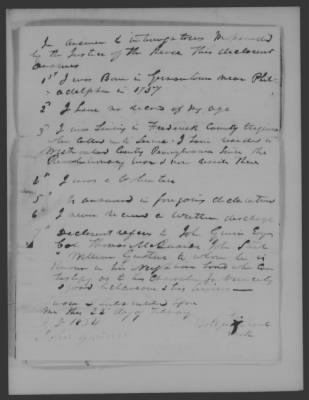 In answer to interrogatories propounded
by the Justice of the Peace this declarant
answers
1st I was Born in Germantown near Phil-
adelphia in 1757
2d I have no record of my age
3d I was Living in Frederick County Virginia
when called in to Service. I have resided in
Westmoreland County Pennsylvania since the
Revolutionary war & now reside there
4th I was a volunteer
5th is answered in foregoing declaration
6th I never received a written discharge
7 Declarant refers to John
Col Thomas John
William to whom he is
known in his neighbourhood who can
testify as to his character for veracity
& good behaviour & his services
sworn & subscribed before
me this 22d day of
A D 1834
John